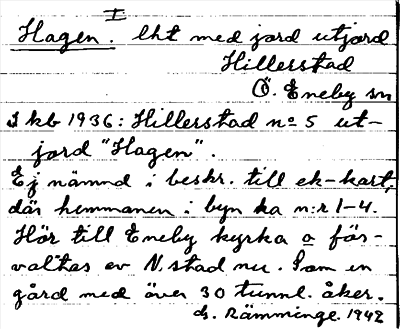 I
Hagen. Lht med jord utjord
Hillerstad
Ö. Eneby sn
I kb 1936: Hillerstad no 5 ut-
jord "Hagen".
Ej nämnd i beskr. till ek-kart,
där hemmanen i byn ha n:r 1-4.
Hör till Eneby kyrka o för-
valtas av N.stad nu. Som en
gård med över 30 tunnl. åker.
G. Rämminge. 1942